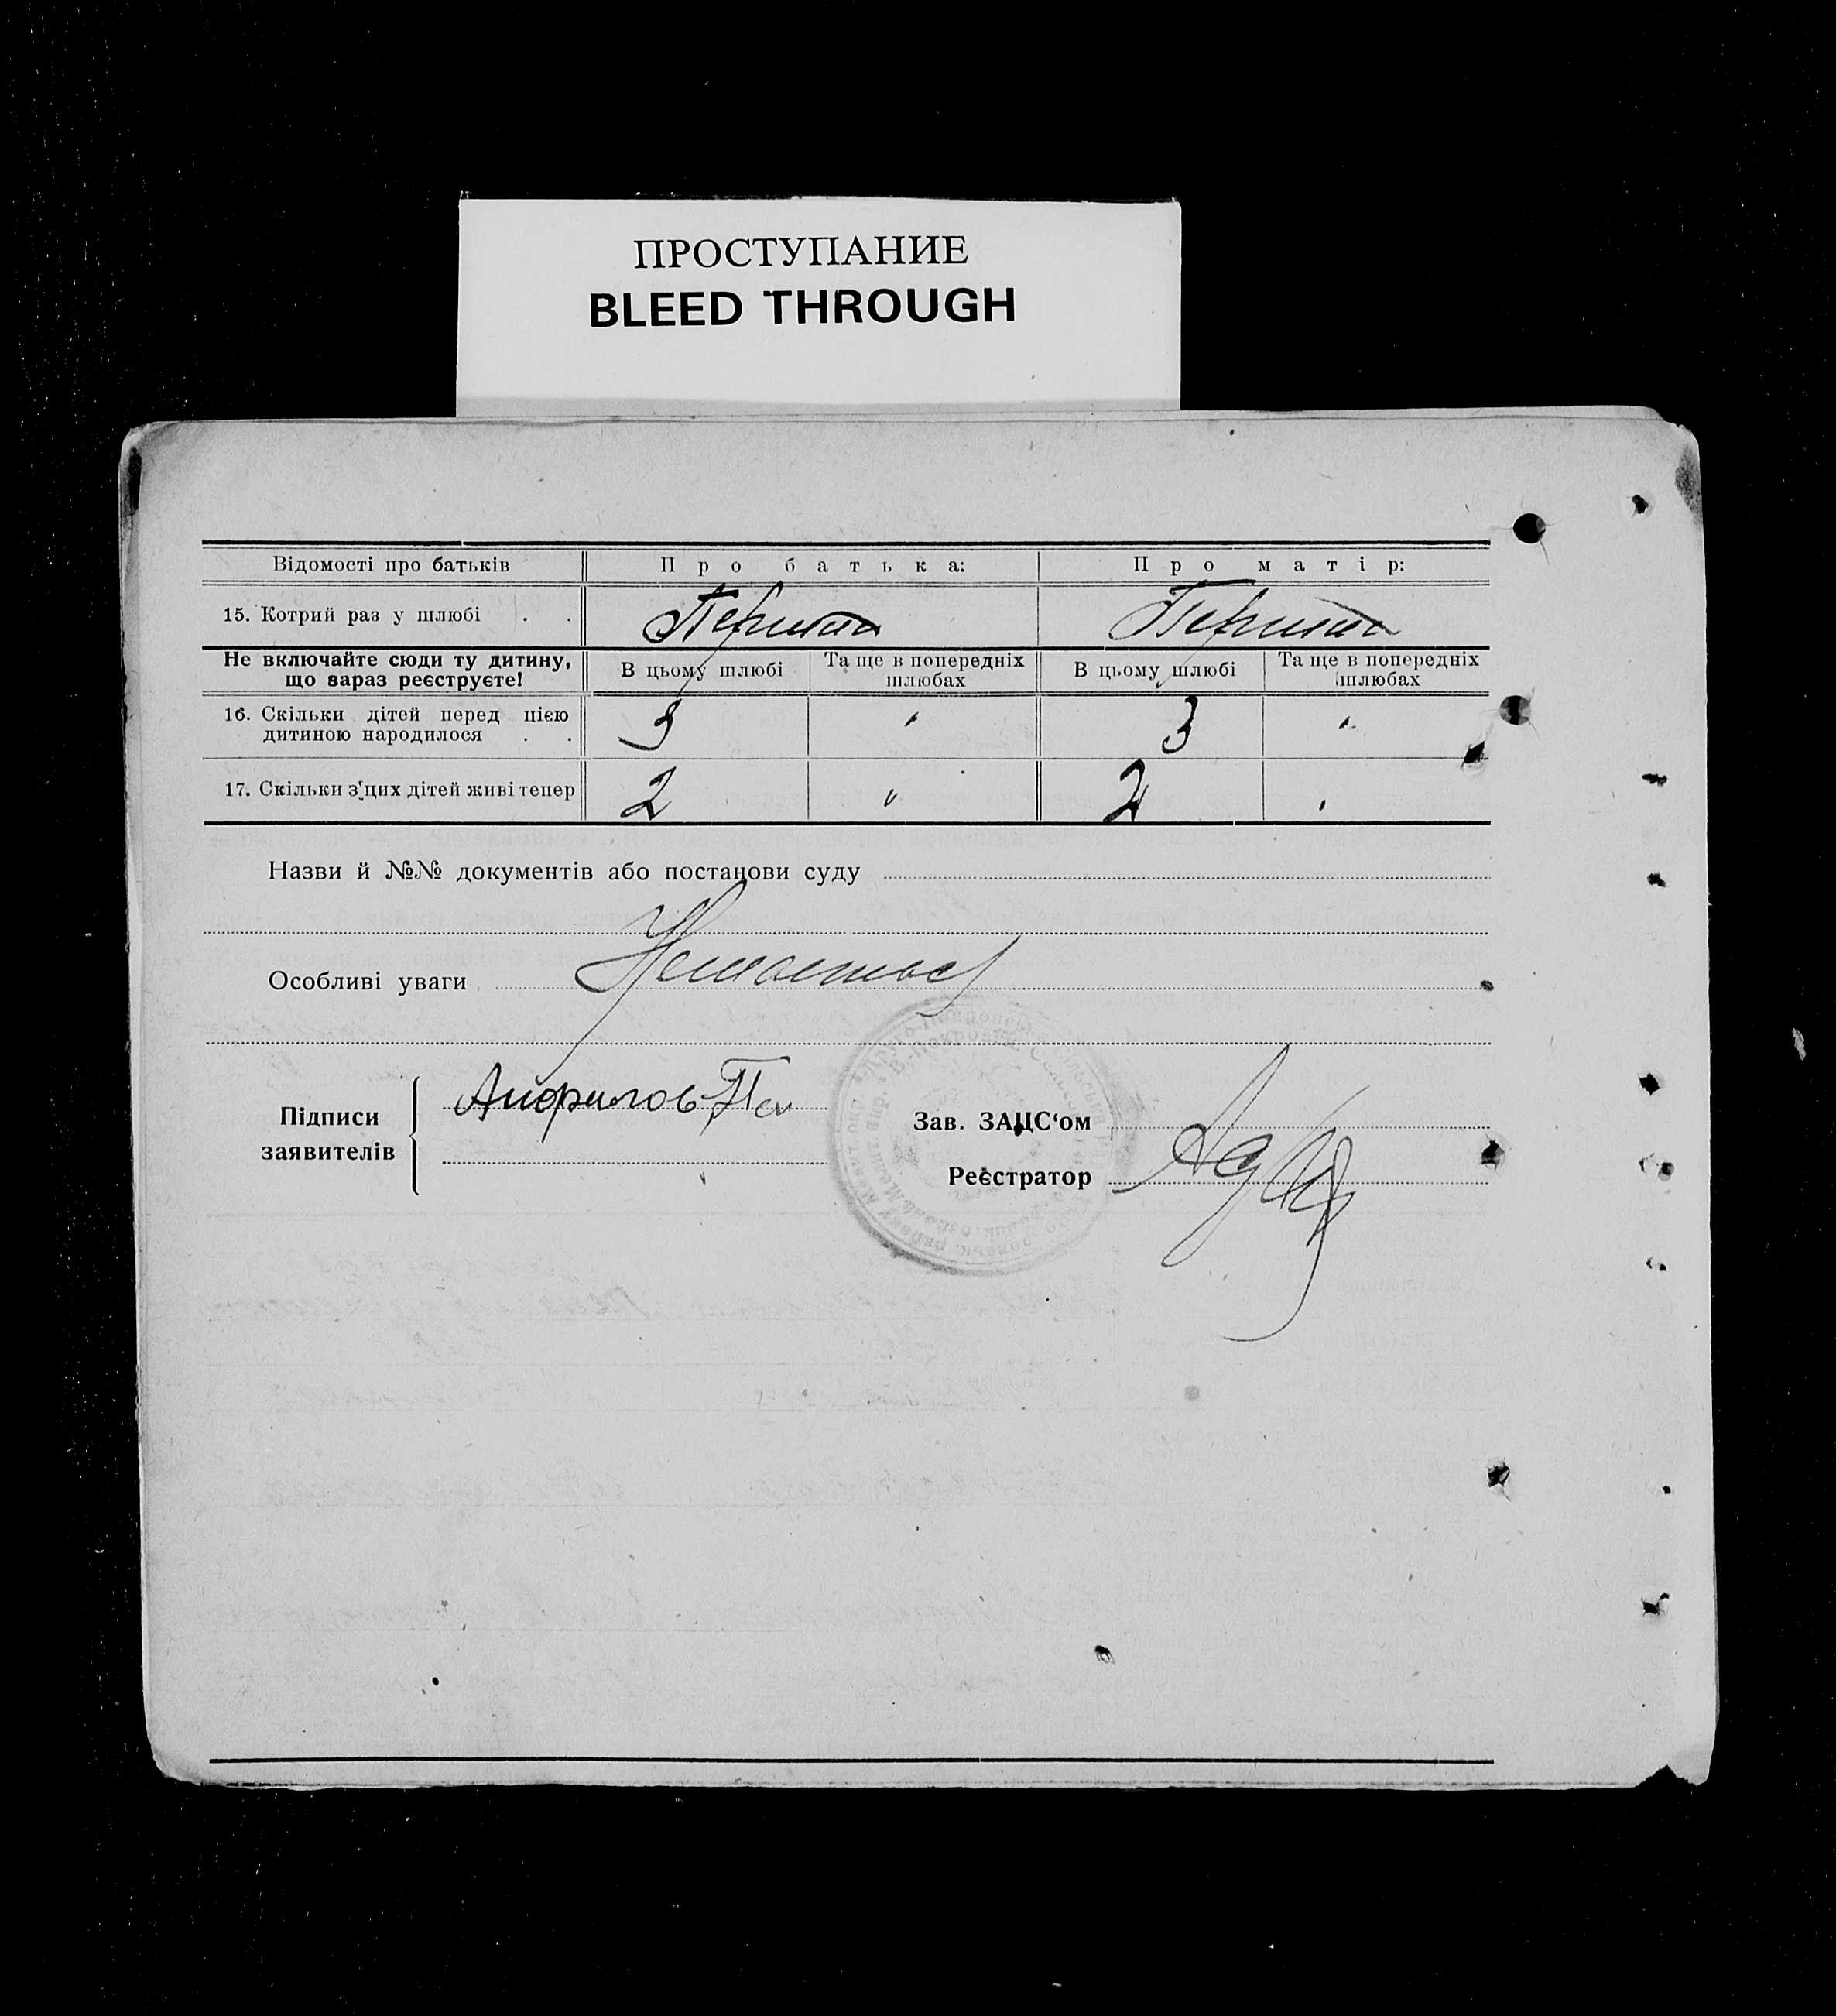 ПРОСТУПАНИЕ
BLEED THROUGH
Відомості про батьків Про батька: Про матір:
15. Котрий раз у шлюбі . . Перший Перший
Не включайте сюди ту дитину, що зараз реєструєте! В цьому шлюбі Та ще в попередніх шлюбах В цьому шлюбі Та ще в попередніх шлюбах
16. Скільки дітей перед цією дитиною народилося . . 3 " 3 "
17. Скільки з'цих дітей живі тепер 2 " 2 "
Назви й №№ документів або постанови суду
Особливі уваги
Підписи заявителів
Зав. ЗАЦС‘ом
Реєстратор